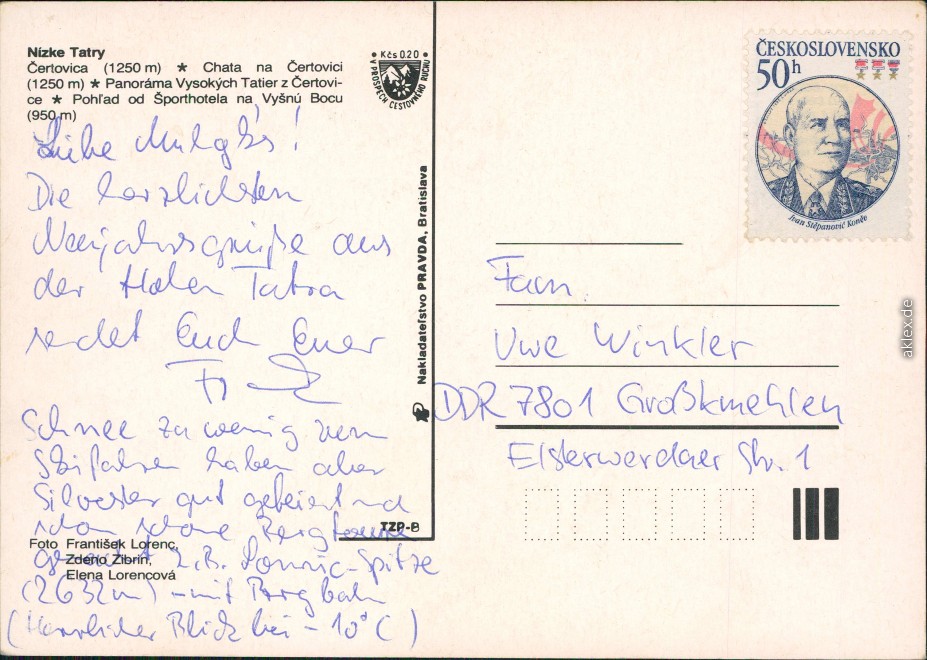 Nízke Tatry
Čertovica (1250 m) ★ Chata na Čertovici
(1250 m) ★ Panoráma Vysokých Tatier z Čertovi-
ce ★ Pohľad od Športhotela na Vyšnú Bocu
(950 m)
• Kčs 0.20 •
V PROSPECH CESTOVNÉHO RUCHU
Liebe
Die herzlichsten
Neujahrsgrüße aus
der Hohen Tatra
sendet Euch Euer
Schnee zu wenig zum
Skifahren haben aber
Silvester gut gefeiert und
schon schöne Bergtouren
gemacht z.B. Lomnic-Spitze
(2632m) – mit Bergbahn
(Herrlicher Blick bei – 10°C)
Foto František Lorenc,
Zdeno Žibrín,
Elena Lorencová
TZP-B
Nakladateľstvo PRAVDA, Bratislava
ČESKOSLOVENSKO
50h
Ivan Stěpanovič Koněv
Fam.
Uwe Winkler
DDR 7801 Großkmehlen
Elsterwerdaer Str. 1
aklex.de